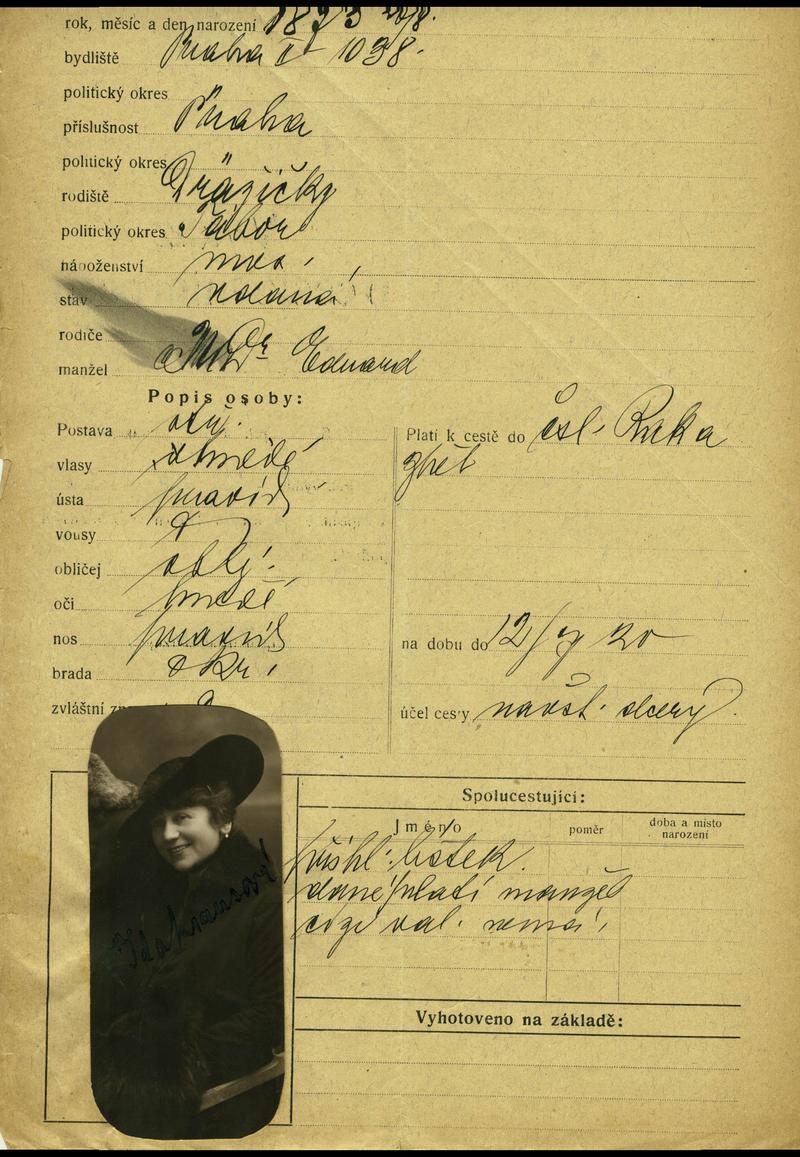 rok, měsíc a den narození 1893
bydliště Praha II 1098.
politický okres
příslušnost Praha
politický okres
rodiště Dražičky
politický okres Tábor
náboženství mos.
stav vdaná
rodiče
manžel MUDr Eduard
Popis osoby:
Postava stř.
vlasy hnědé
ústa pravid
vousy
obličej oblý.
oči hnědé
nos pravid
brada okr.
zvláštní
Platí k cestě do čsl. Rak a
zpět
na dobu do 12/ 20
účel cesty návšt. dcery.
Spolucestující:
Jméno
poměr
doba a místo
narození
přihl. lístek.
daně platí manžel
cizí val. nemá,
Vyhotoveno na základě: